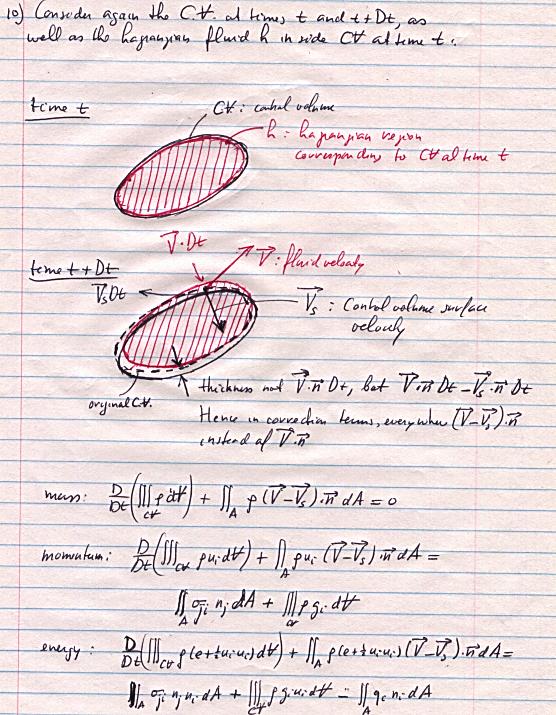 10) Consider again the C.V. at times t and t+Dt, as
well as the Lagrangian fluid L inside CV at time t.
time t
CV: control volume
L: Lagrangian region
corresponding to CV at time t
V⃗·Dt
V⃗: fluid velocity
time t+Dt
V⃗s Dt
V⃗s: Control volume surface
velocity
original C.V.
thickness not V⃗·n⃗ Dt, but V⃗·n⃗ Dt - V⃗s·n⃗ Dt
Hence in convection terms, everywhere (V⃗-V⃗s)·n⃗
instead of V⃗·n⃗
mass: D/Dt(∭_CV ρ dV) + ∬_A ρ(V⃗-V⃗s)·n⃗ dA = 0
momentum: D/Dt(∭_CV ρu_i dV) + ∬_A ρu_i (V⃗-V⃗s)·n⃗ dA =
∬_A σ_ji n_j dA + ∭_CV ρ g_i dV
energy: D/Dt(∭_CV ρ(e+½u_iu_i) dV) + ∬_A ρ(e+½u_iu_i)(V⃗-V⃗s)·n⃗ dA =
∬_A σ_ji n_j u_i dA + ∭_CV ρ g_i u_i dV - ∬_A q_i n_i dA